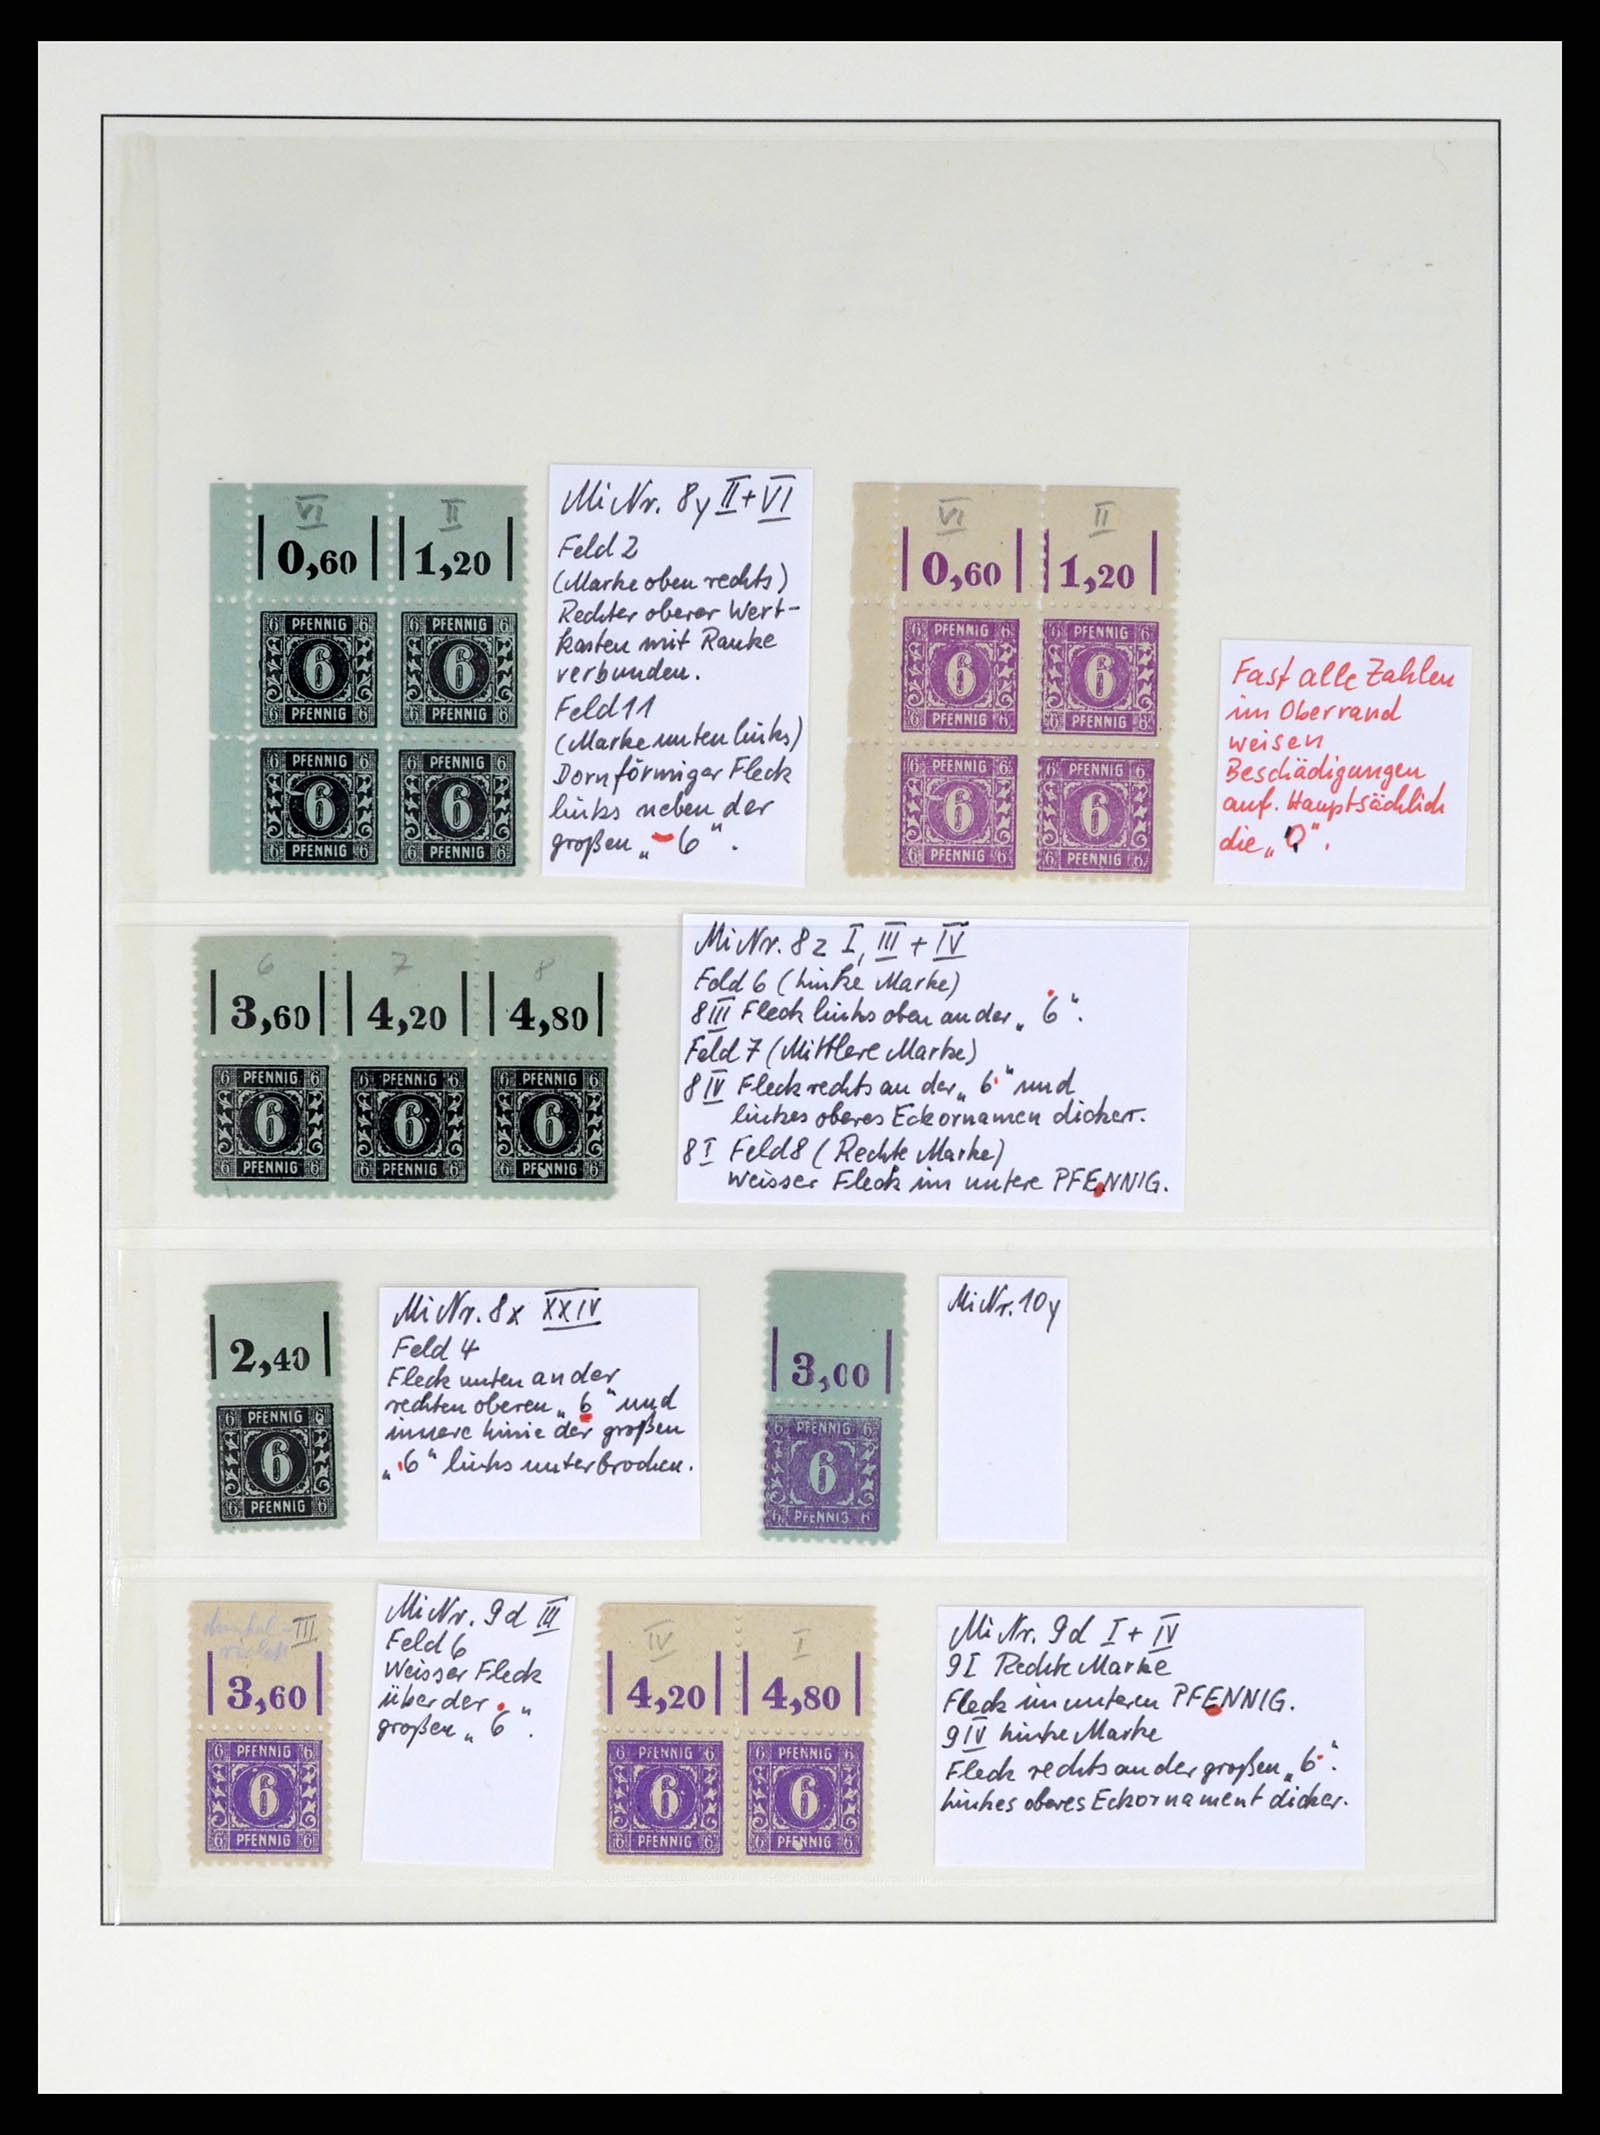 VI II
0,60 1,20
6 PFENNIG 6 6 PFENNIG 6
6 6
6 PFENNIG 6 6 PFENNIG 6
6 PFENNIG 6 6 PFENNIG 6
6 6
6 PFENNIG 6 6 PFENNIG 6
MiNr. 8y II + VI
Feld 2
(Marke oben rechts)
Rechter oberer Wert-
kasten mit Ranke
verbunden.
Feld 11
(Marke unten links)
Dornförmiger Fleck
links neben der
großen „6".
VI II
0,60 1,20
6 PFENNIG 6 6 PFENNIG 6
6 6
6 PFENNIG 6 6 PFENNIG 6
6 PFENNIG 6 6 PFENNIG 6
6 6
6 PFENNIG 6 6 PFENNIG 6
Fast alle Zahlen
im Oberrand
weisen
Beschädigungen
auf. Hauptsächlich
die „0".
6 7 8
3,60 4,20 4,80
6 PFENNIG 6 6 PFENNIG 6 6 PFENNIG 6
6 6 6
6 PFENNIG 6 6 PFENNIG 6 6 PFENNIG 6
MiNr. 8z I, III + IV
Feld 6 (linke Marke)
8 III Fleck links oben an der „6".
Feld 7 (Mittlere Marke)
8 IV Fleck rechts an der „6" und
linkes oberes Eckornamen dicker.
8 I Feld 8 (Rechte Marke)
Weisser Fleck im untere PFENNIG.
2,40
6 PFENNIG 6
6
6 PFENNIG 6
MiNr. 8x XXIV
Feld 4
Fleck unten an der
rechten oberen „6" und
innere Linie der großen
„6" links unterbrochen.
3,00
6 PFENNIG 6
6
6 PFENNIG 6
MiNr. 10y
dunkel- III
violett
3,60
6 PFENNIG 6
6
6 PFENNIG 6
MiNr. 9d III
Feld 6
Weisser Fleck
über der
großen „6".
IV I
4,20 4,80
6 PFENNIG 6 6 PFENNIG 6
6 6
6 PFENNIG 6 6 PFENNIG 6
MiNr. 9d I + IV
9 I Rechte Marke
Fleck im unteren PFENNIG.
9 IV linke Marke
Fleck rechts an der großen „6".
linkes oberes Eckornament dicker.